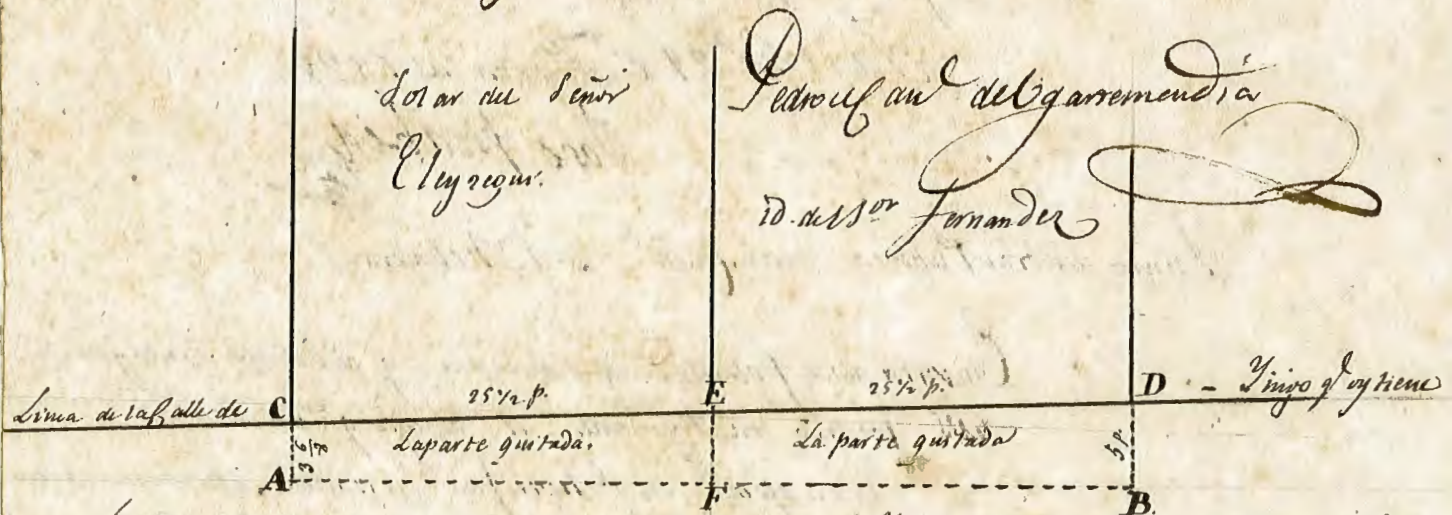 Solar del Señor
Eleyzegui.
Pedro Man^l de Ugarremendia
id. del S^or Fernandez
Linea de la Calle de C 25 1/2 p. E 25 1/2 p. D - Yñigo q^e oy tiene
3 6/8 La parte quitada. La parte quitada 5 p.
A F B.